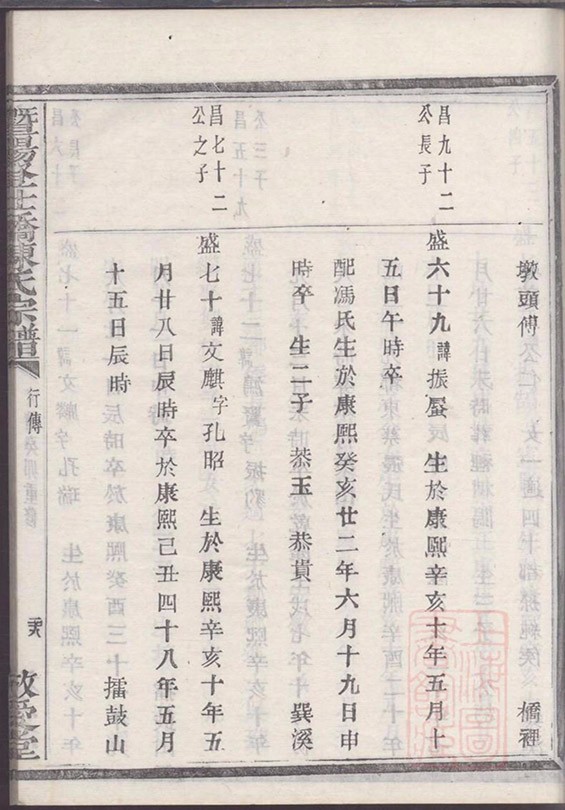 墩頭傅公仁 女一適四十都孫純侯 橋裡
昌九十二
公長子
盛六十九諱振蜃 生於康熙辛亥十年五月十
五日午時卒
配馮氏生於康熙癸亥廿二年六月十九日申
時卒 生二子 恭玉 恭貴 巽溪
昌七十二
公之子
盛七十諱文麒字孔昭 生於康熙辛亥十年五
月廿八日辰時卒於康熙己丑四十八年五月
十五日辰時 擂鼓山
陳氏宗譜
行傳
癸卯重修
敬愛堂